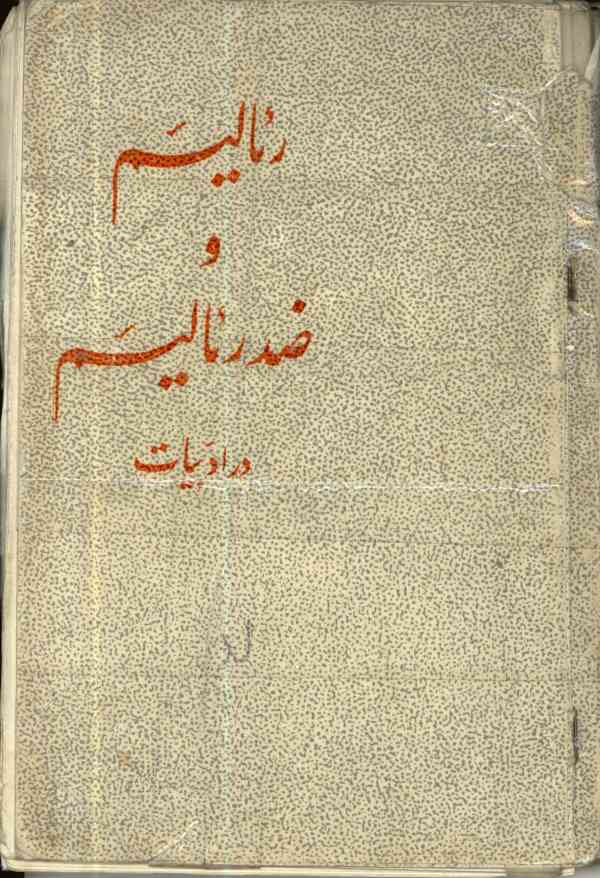 رئالیسم
و
ضد رئالیسم
در ادبیات